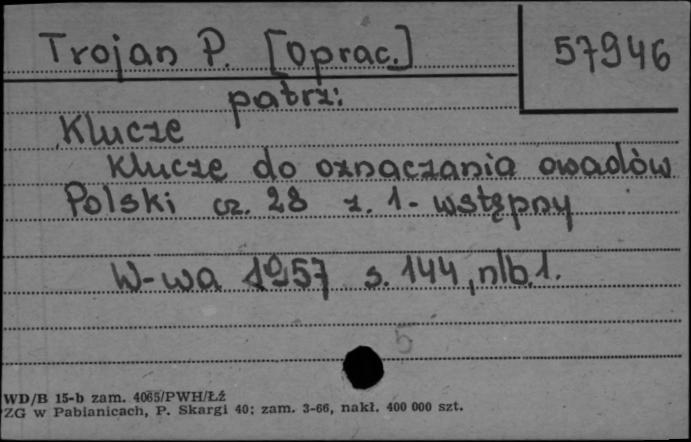 Trojan P. [oprac.]
57946
patrz:
Klucze
Klucze do oznaczania owadów
Polski cz. 28 z. 1 - wstępny
W-wa 1957 s. 144, nlb. 1.
5
WD/B 15-b zam. 4065/PWH/Łź
ZG w Pabianicach, P. Skargi 40; zam. 3-66, nakł. 400 000 szt.